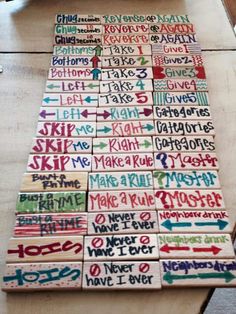 Chug seconds REVERSE OR AGAIN
Chug seconds REVERSE OR AGAIN
Chug seconds REVERSE OR AGAIN
Bottoms Take 1 Give 1
Bottoms Take 2 Give 2
Bottoms Take 3 Give 3
Left Take 4 Give 4
Left Take 5 Give 5
Left Right Categories
SKIP Me Right Categories
SKIP Me Right Categories
SKIP Me Make a Rule ? Master
Bust a RHYME Make a Rule ? Master
Bust a RHYME Make a Rule ? Master
Bust a RHYME Never Have I Ever Neighbors drink
Never Have I Ever Neighbors drink
Never Have I Ever Neighbors drink